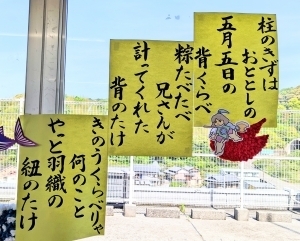 柱のきずは
おととしの
五月五日の
背くらべ
粽たべたべ
兄さんが
計ってくれた
背のたけ
きのうくらべりゃ
何のこと
やっと羽織の
紐のたけ